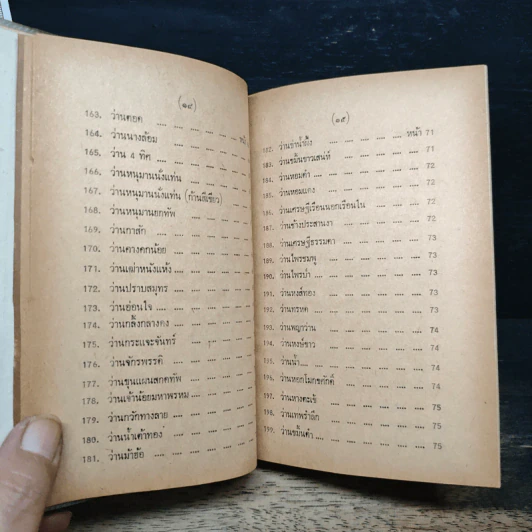 (๑๔)
163. ว่านตอด .... .... .... .... .... .... หน้า
164. ว่านนางล้อม .... .... .... .... ....
165. ว่าน 4 ทิศ .... .... .... .... ....
166. ว่านหนุมานนั่งแท่น .... .... .... ....
167. ว่านหนุมานนั่งแท่น (ก้านสีเขียว)
168. ว่านหนุมานยกทัพ .... .... .... ....
169. ว่านกาสัก .... .... .... .... ....
170. ว่านคางคกน้อย .... .... .... ....
171. ว่านเฒ่าหนังแห้ง .... .... .... ....
172. ว่านปราบสมุทร .... .... .... ....
173. ว่านอ่อนใจ .... .... .... .... ....
174. ว่านกลิ้งกลางดง .... .... .... ....
175. ว่านกระแจะจันทร์ .... .... .... ....
176. ว่านจักรพรรดิ .... .... .... ....
177. ว่านขุนแผนสะกดทัพ .... .... ....
178. ว่านเจ้าน้อยมหาพรหม .... .... ....
179. ว่านกวักทางลาย .... .... .... ....
180. ว่านน้ำเต้าทอง .... .... .... ....
181. ว่านเม้าธ้อ .... .... .... .... ....
(๑๕)
182. ว่านช้าน้ำผึ้ง .... .... .... .... หน้า 71
183. ว่านขมิ้นขาวเสน่ห์ .... .... .... .... 72
184. ว่านหอมดำ .... .... .... .... .... 72
185. ว่านหอมแดง .... .... .... .... .... 72
186. ว่านเศรษฐีเรือนนอกเรือนใน .... .... .... 72
187. ว่านช้างประสานงา .... .... .... .... 72
188. ว่านเศรษฐีธรรมดา .... .... .... .... 73
189. ว่านไพรชมพู .... .... .... .... .... 73
190. ว่านไพรป่า .... .... .... .... .... 73
191. ว่านหงส์ทอง .... .... .... .... .... 73
192. ว่านทรหด .... .... .... .... .... 73
193. ว่านพญาว่าน .... .... .... .... .... 74
194. ว่านหงษ์ขาว .... .... .... .... .... 74
195. ว่านน้ำ .... .... .... .... .... .... 74
196. ว่านหอกโมกขศักดิ์ .... .... .... .... 74
197. ว่านหางตะเข้ .... .... .... .... .... 75
198. ว่านเทพรำลึก .... .... .... .... .... 75
199. ว่านขมิ้นดำ .... .... .... .... .... 75